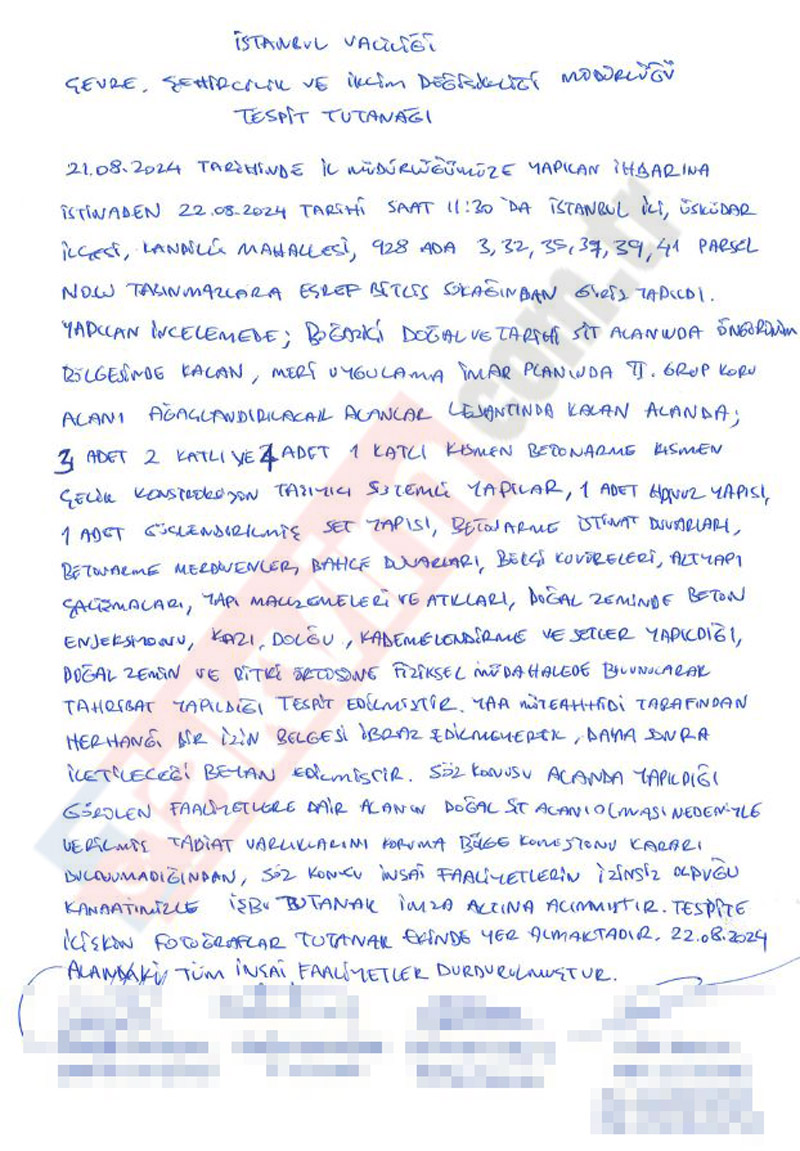 İSTANBUL VALİLİĞİ
ÇEVRE, ŞEHİRCİLİK VE İKLİM DEĞİŞİKLİĞİ MÜDÜRLÜĞÜ
TESPİT TUTANAĞI
21.08.2024 TARİHİNDE İL MÜDÜRLÜĞÜMÜZE YAPILAN İHBARINA
İSTİNADEN 22.08.2024 TARİHİ SAAT 11:30'DA İSTANBUL İLİ, ÜSKÜDAR
İLÇESİ, KANDİLLİ MAHALLESİ, 928 ADA 3, 32, 35, 37, 39, 41 PARSEL
NOLU TAŞINMAZLARA EŞREF BİTLİS SOKAĞINDAN GİRİŞ YAPILDI.
YAPILAN İNCELEMEDE; BOĞAZİÇİ DOĞAL VE TARİHİ SİT ALANINDA ÖNGÖRÜNÜM
BÖLGESİNDE KALAN, MERİ UYGULAMA İMAR PLANINDA II. GRUP KORU
ALANI AĞAÇLANDIRILACAK ALANLAR LEJANTINDA KALAN ALANDA;
3 ADET 2 KATLI VE 4 ADET 1 KATLI KISMEN BETONARME KISMEN
ÇELİK KONSTRÜKSİYON TAŞIYICI SİSTEMLİ YAPILAR, 1 ADET HAVUZ YAPISI,
1 ADET GÜÇLENDİRİLMİŞ SET YAPISI, BETONARME İSTİNAT DUVARLARI,
BETONARME MERDİVENLER, BAHÇE DUVARLARI, BEKÇİ KULÜBELERİ, ALTYAPI
ÇALIŞMALARI, YAPI MALZEMELERİ VE ATIKLARI, DOĞAL ZEMİNDE BETON
ENJEKSİYONU, KAZI, DOLGU, KADEMELENDİRME VE SETLER YAPILDIĞI,
DOĞAL ZEMİN VE BİTKİ ÖRTÜSÜNE FİZİKSEL MÜDAHALEDE BULUNULARAK
TAHRİBAT YAPILDIĞI TESPİT EDİLMİŞTİR. YAPI MÜTEAHHİDİ TARAFINDAN
HERHANGİ BİR İZİN BELGESİ İBRAZ EDİLMEYEREK, DAHA SONRA
İLETİLECEĞİ BEYAN EDİLMİŞTİR. SÖZ KONUSU ALANDA YAPILDIĞI
GÖRÜLEN FAALİYETLERE DAİR ALANIN DOĞAL SİT ALANI OLMASI NEDENİYLE
VERİLMİŞ TABİAT VARLIKLARINI KORUMA BÖLGE KOMİSYONU KARARI
BULUNMADIĞINDAN, SÖZ KONUSU İNŞAİ FAALİYETLERİN İZİNSİZ OLDUĞU
KANAATİMİZLE İŞBU TUTANAK İMZA ALTINA ALINMIŞTIR. TESPİTE
İLİŞKİN FOTOĞRAFLAR TUTANAK EKİNDE YER ALMAKTADIR. 22.08.2024
ALANDAKİ TÜM İNŞAİ FAALİYETLER DURDURULMUŞTUR.
com.tr